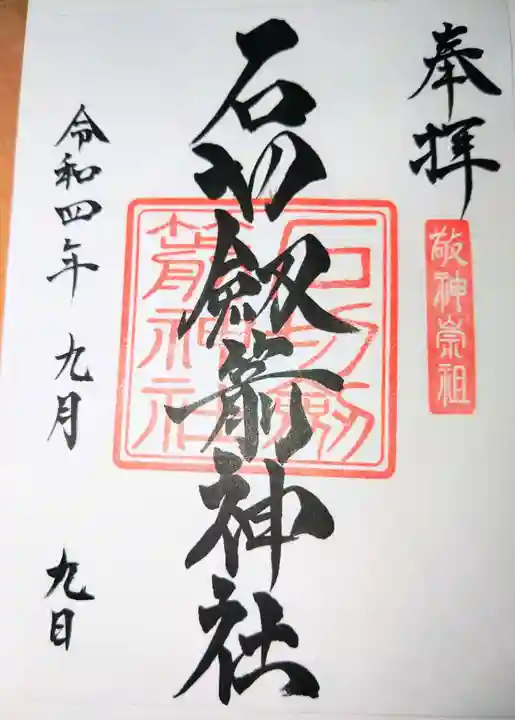 奉拝
敬神崇祖
石切劔箭神社
石切劔
箭神社
令和四年 九月 九日